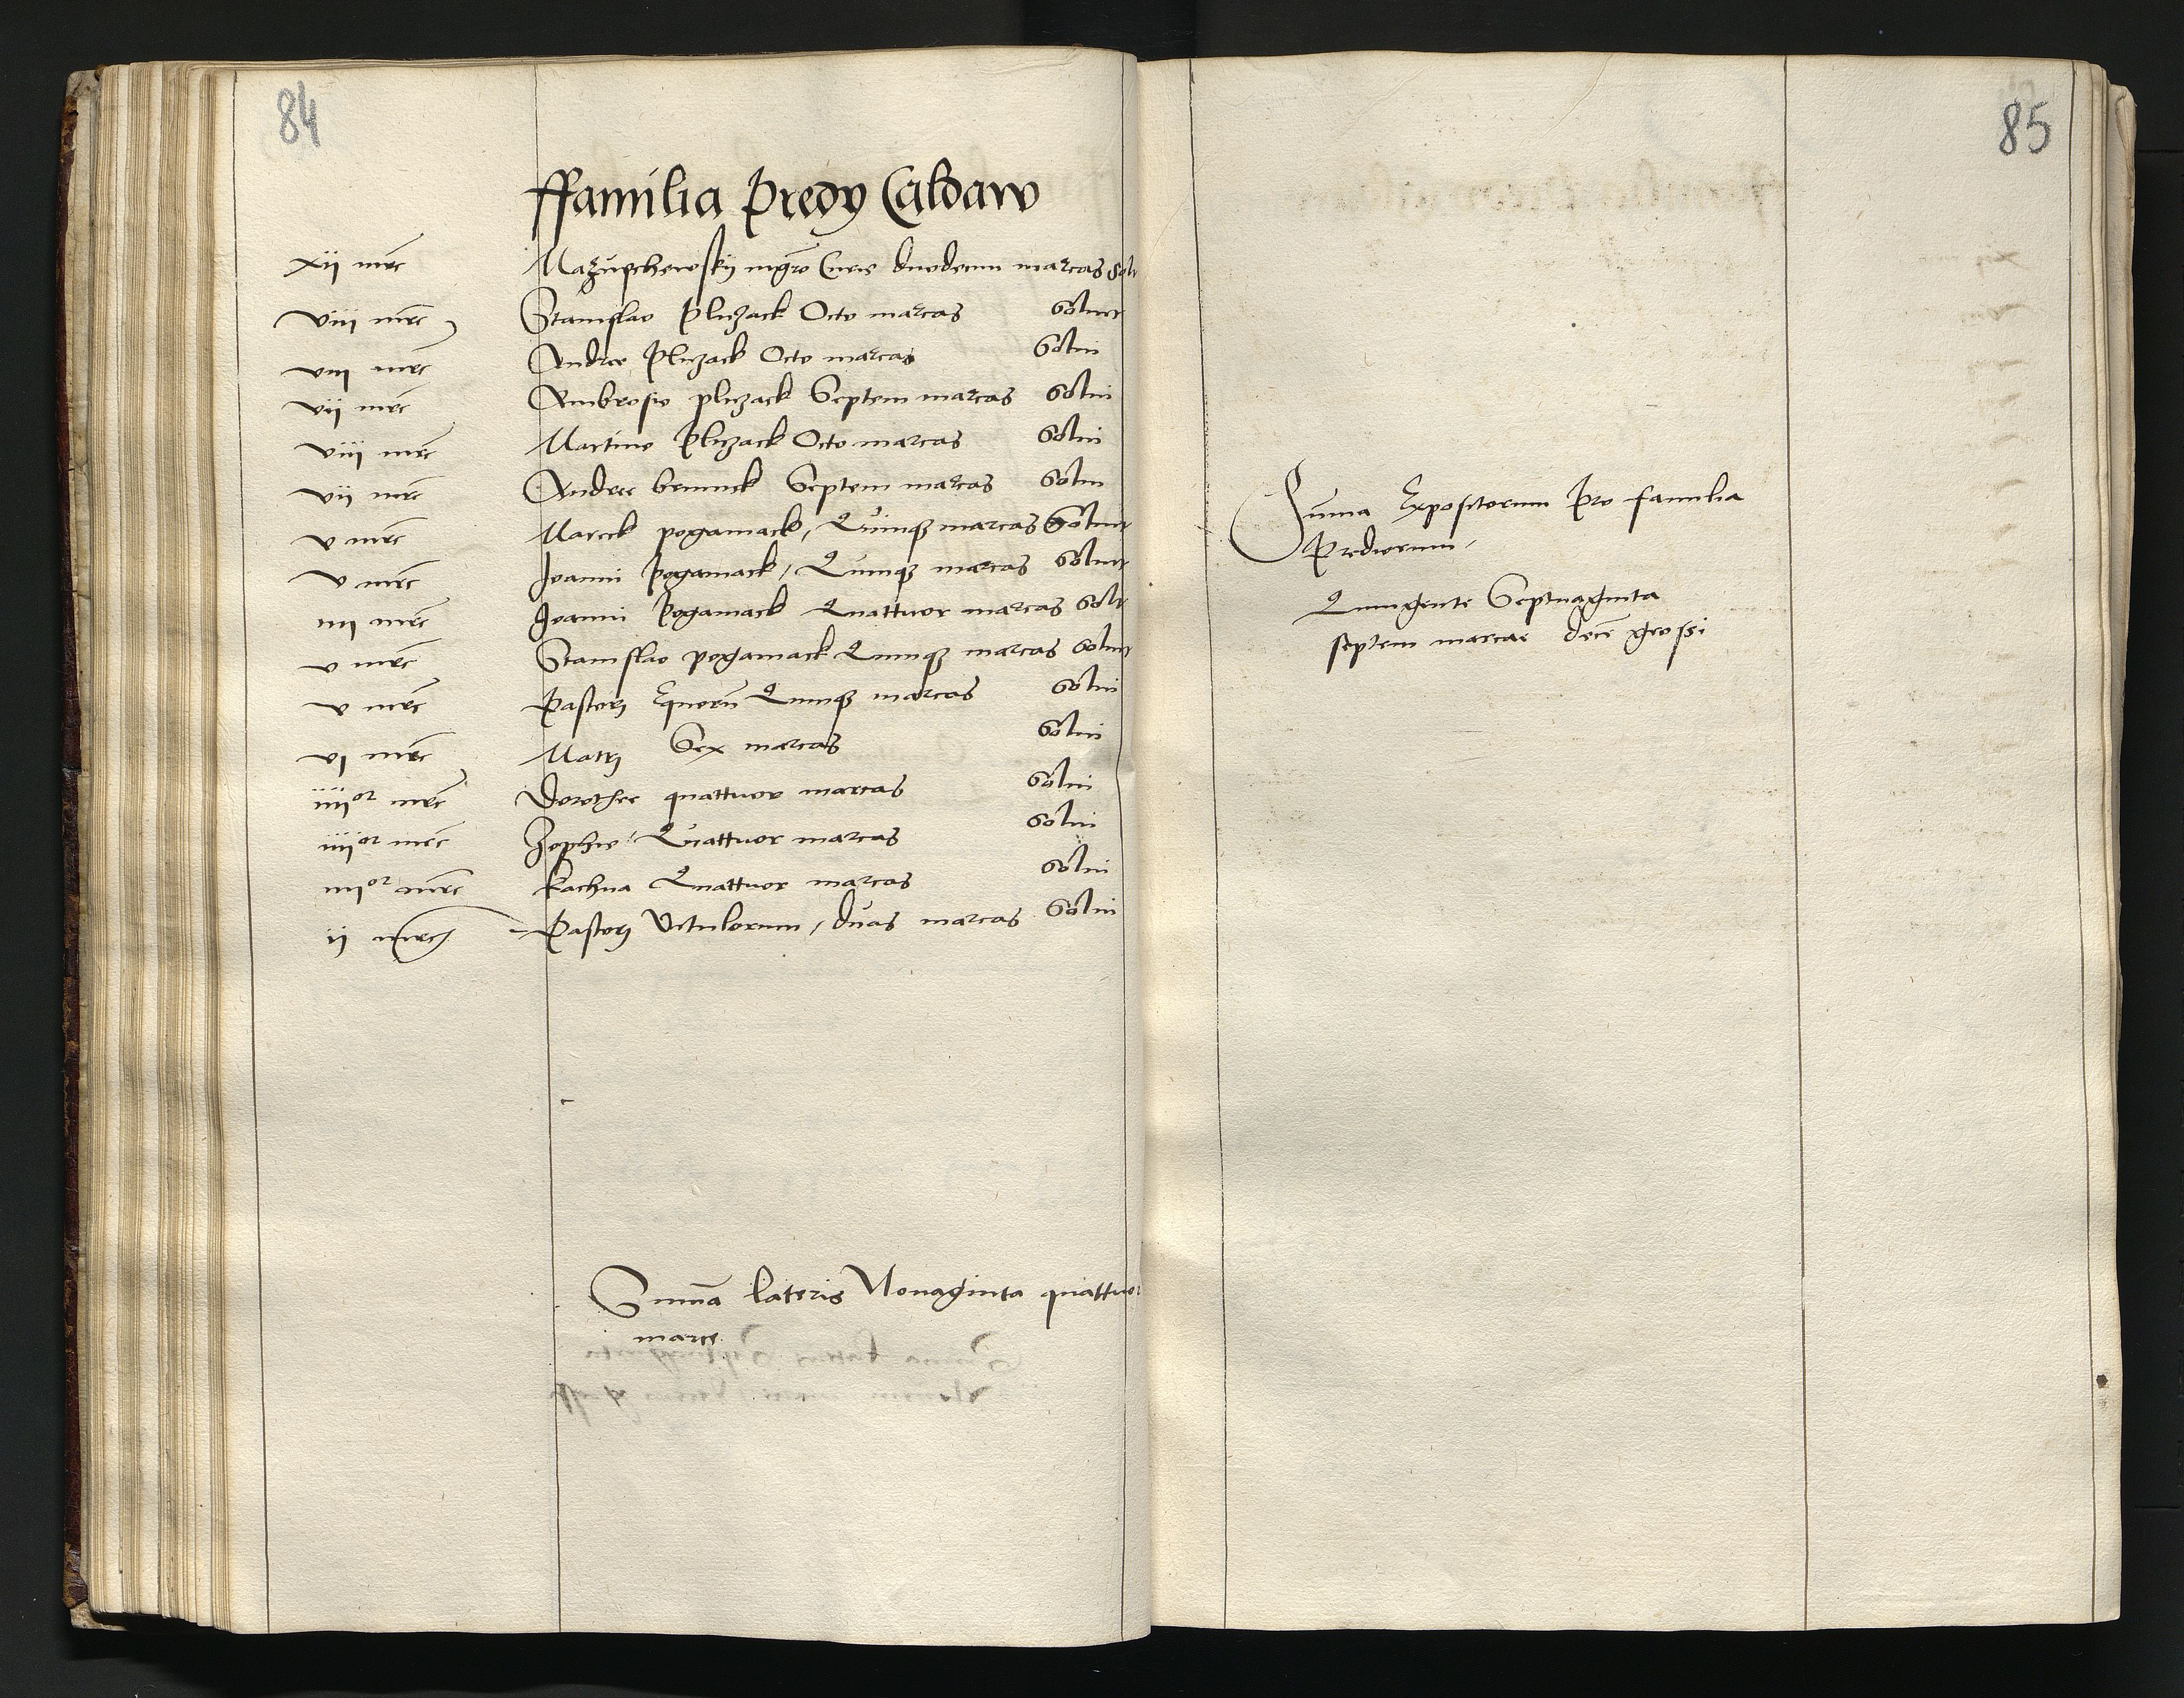 84
ffamilia Predy Caldaw
xij mrc Mazupchewskij mgro Curie duodecim marcas Solu
viii mrc Stanislao Pluzack Octo marcas Soluit
viii mrc Andree Pluzack Octo marcas Solui
vij mrc Ambrosio pluzack Septem marcas Solui
viii mrc Martino Pluzack Octo marcas Solui
vij mrc Andree Septem marcas Solui
v mrc Marcik poganiack, Quinq marcas Soluit
v mrc Joanni Poganiack, Quinq marcas Soluit
iiii mrc Joanni Poganiack Quattuor marcas Solu
v mrc Stanislao poganiack Quinq marcas Soluit
v mrc Pastori Equoru Quinq marcas Solui
vi mrc Matrj Sex marcas Solui
iiii or mrc Dorothee quattuor marcas Solui
iiii or mrc Zophie Quattuor marcas Solui
iiii or mrc Kachna Quattuor marcas Solui
ij mrc Pastori Vitulorum, duas marcas Solui
Suma lateris Nonaginta quattuor
marce
85
Suma Expositorum Pro familia
Prediorum,
Quingente Septuaginta
septem marcae dece grossi